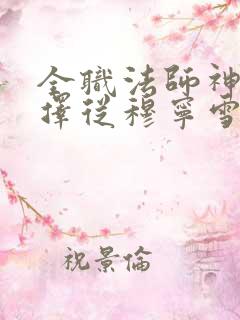 全職法師神
擇從穆寧雪
祝景倫